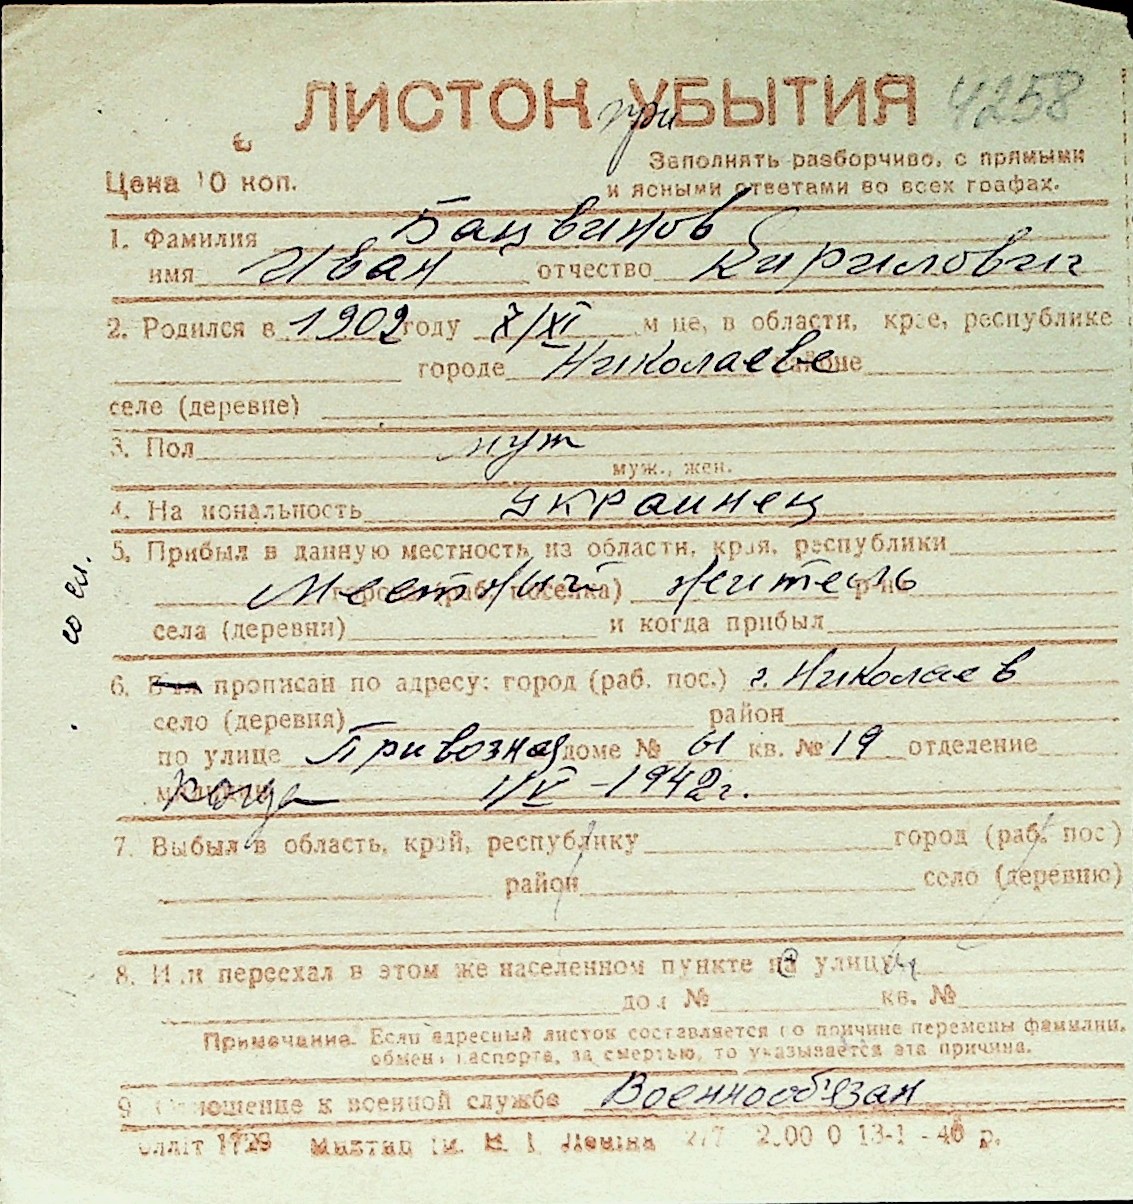 4258
ЛИСТОК при УБЫТИЯ
Цена 10 коп.
Заполнять разборчиво, с прямыми
и ясными ответами во всех графах.
1. Фамилия Бацвинов
имя Иван отчество Кирилович
2. Родился в 1902 году X/XI м-це, в области, крае, республике
городе Николаеве районе
селе (деревне)
3. Пол муж
муж., жен.
4. Национальность украинец
5. Прибыл в данную местность из области, края, республики
города (раб. поселка) Местный житель р-на
села (деревни) и когда прибыл
6. Был прописан по адресу: город (раб. пос.) г. Николаев
село (деревня) район
по улице Привозная доме № 61 кв. № 19 отделение
милиции Когда 1/V - 1942 г.
7. Выбыл в область, край, республику город (раб. пос)
район село (деревню)
8. Или переехал в этом же населенном пункте на улицу
дом № кв. №
Примечание. Если адресный листок составляется по причине перемены фамилии,
обмена паспорта, за смертью, то указывается эта причина.
9. Отношение к военной службе Военнообязан
1729 им. В. И. Ленина 2/7 13-1-40 р.